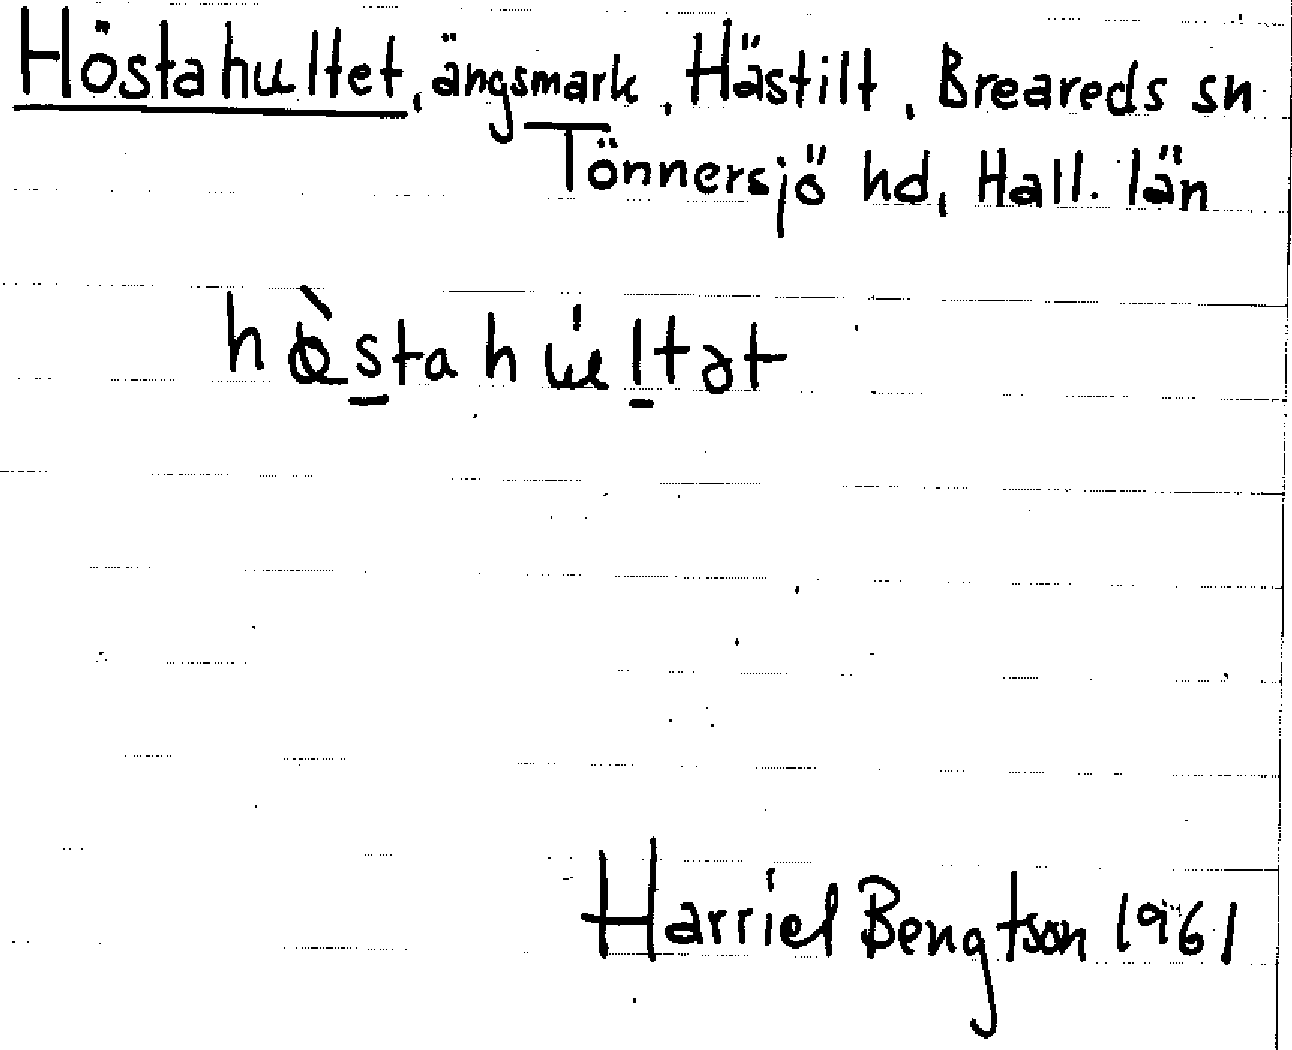 Höstahultet, ängsmark, Hästilt, Breareds sn
Tönnersjö hd, Hall. län
hò̱s̱tahúḻtət
Harriel Bengtson 1961